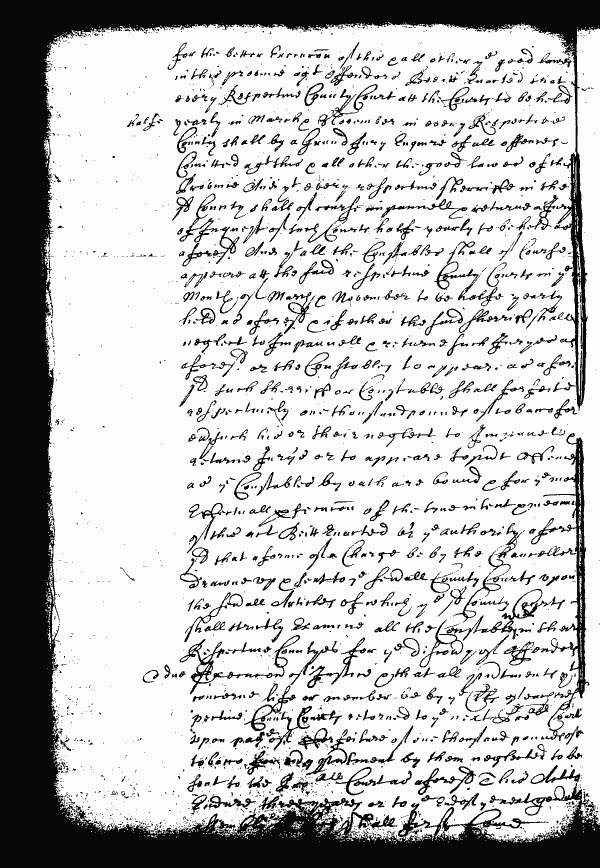 for the better Execucon of this & all other ye good lawes
in this province agt Offendors Bee itt Enacted that
every Respective County Court att the Courts to be held
halfe yearly in March & November in every Respective
County shall by a Grand Jury Enquire of all offences
Comitted agt this & all other the good lawes of this
Province And yt every respective sherriffe in the
sd County shall of course impannell & returne a Jury
of Inquest of such Courts halfe yearly to be held as
aforesd And yt all the Constables shall of Course
appeare att the said respective County Courts in ye
Month of March & November to be halfe yearly
held as aforesd & if either the said sherriffe shall
neglect to Impannell & returne such Juryes as
aforesd or the Constables to appeare as afore
sd such sherriff or Constable shall forfeite
respectively one thousand pounds of tobaco for
each such his or their neglect to Impannel &
returne Jurys or to appeare & psent offences
as ye Constables by oath are bound & for ye more
Effectuall & execucon of the true intent & meaning
of this act Bee itt Enacted by ye authority afore
sd that a forme of a Charge be by the Chancellor
drawne up & sent to ye severall County Courts upon
the severall Articles of which ye sd County Courts
shall strictly Examine all the Constables in their
Respective Countyes for ye discovery of Offendors
& due Execucon of Justice & that all psentments yt
concerne life or member be by ye Clks of each res
pective County Courts returned to ye next Court
upon paine of forfeiture of one thousand pounds of
tobaco for every psentment by them neglected to be
sent to the Court as aforesd This Act to
Endure three yeares or to ye End of ye next generall
shall first Come